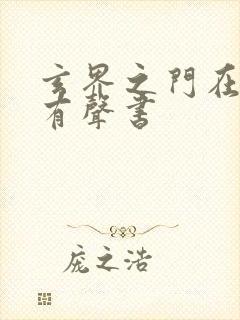 玄界之門在
有聲書
庞之浩